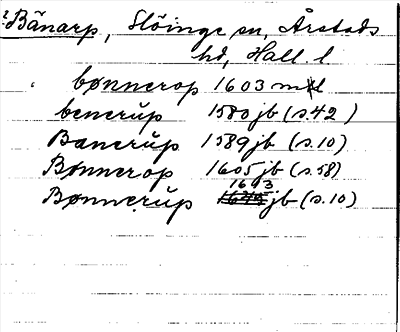 Bänarp, Slöinge sn, Årstads
hd, Hall. l
bønnerop 1603 mtl
benerup 1580 jb (s. 42)
Banerup 1589 jb (s. 10)
Bønnerop 1605 jb (s. 58)
Bønnerup 1643 jb (s. 10)